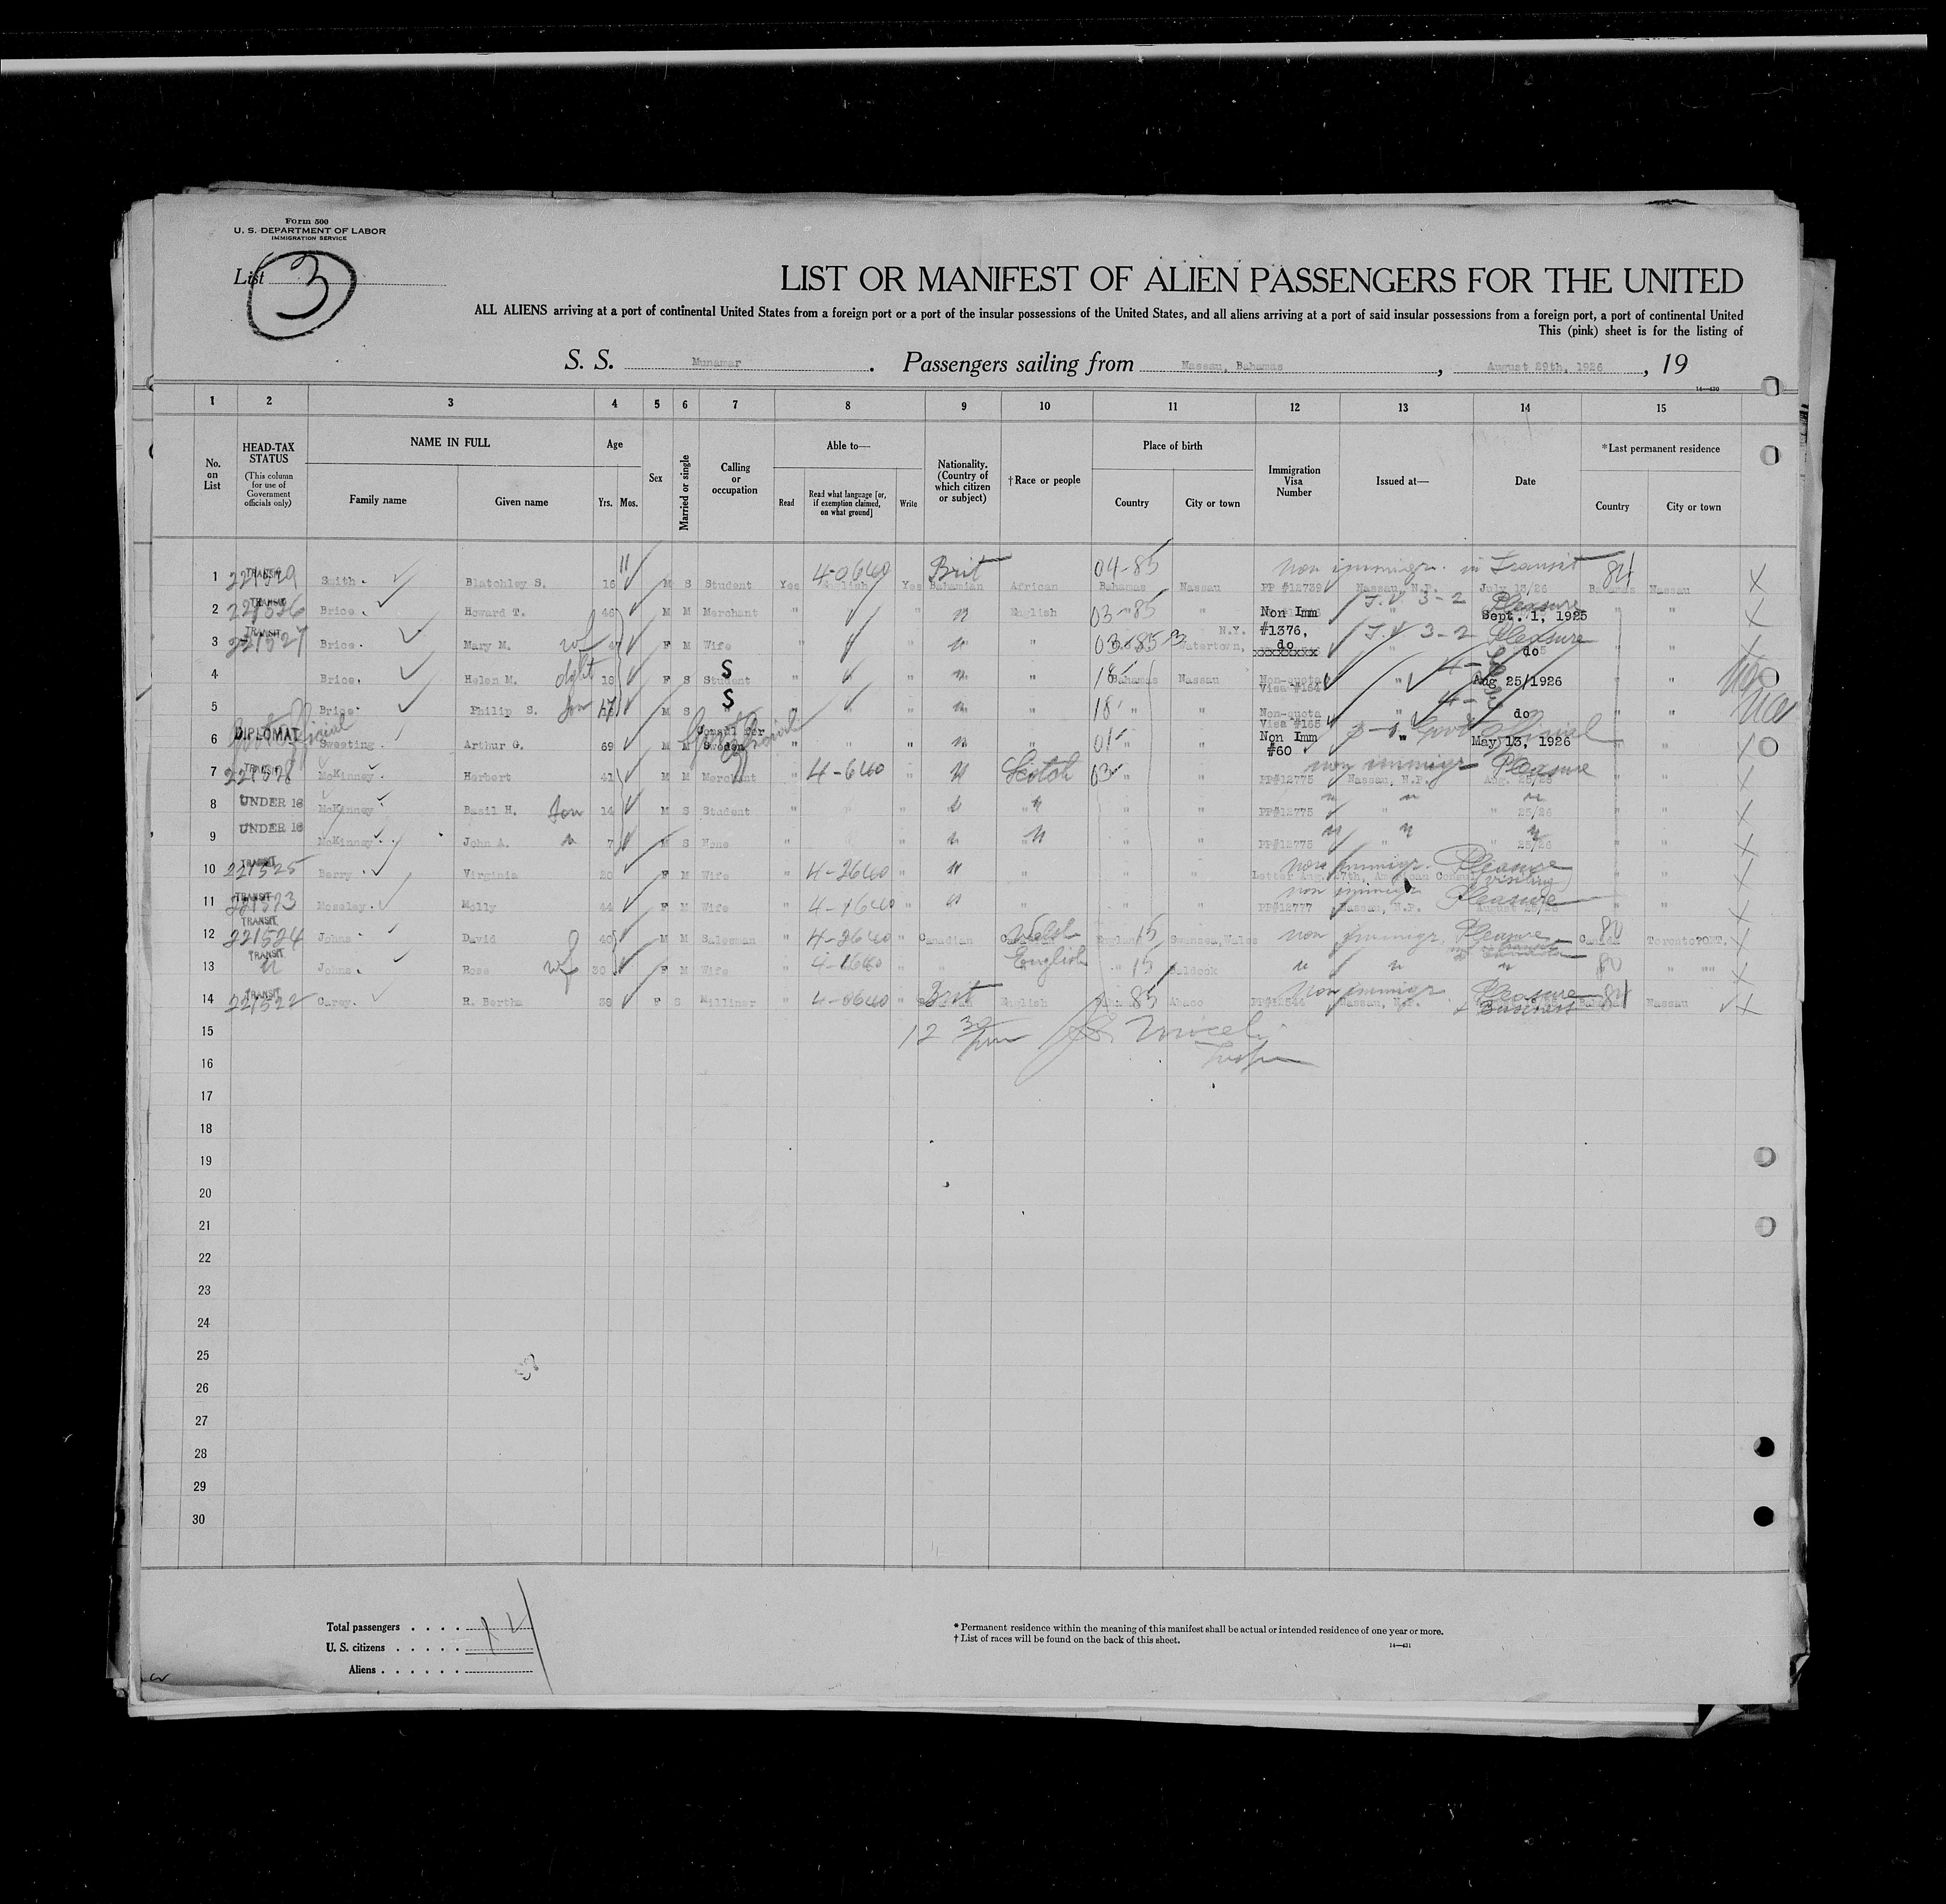 Form 500
U. S. DEPARTMENT OF LABOR
IMMIGRATION SERVICE
List 3
LIST OR MANIFEST OF ALIEN PASSENGERS FOR THE UNITED
ALL ALIENS arriving at a port of continental United States from a foreign port or a port of the insular possessions of the United States, and all aliens arriving at a port of said insular possessions from a foreign port, a port of continental United
This (pink) sheet is for the listing of
S. S. Munamar. Passengers sailing from Nassau, Bahamas, August 29th, 1926, 19
14—430
1 2 3 4 5 6 7 8 9 10 11 12 13 14 15
No. on List
HEAD-TAX STATUS (This column for use of Government officials only)
NAME IN FULL Family name Given name
Age Yrs. Mos.
Sex
Married or single
Calling or occupation
Able to— Read Read what language [or, if exemption claimed, on what ground] Write
Nationality. (Country of which citizen or subject)
†Race or people
Place of birth Country City or town
Immigration Visa Number
Issued at—
Date
*Last permanent residence Country City or town
1 TRANSIT Smith. Blatchley S. 16 11 M S Student Yes English Yes Bahamian Brit African Bahamas 04-85 Nassau PP #12739 Nassau, N.P. July 13/26 non immigr. in Transit Bahamas 84 Nassau X
2 TRANSIT 221526 Brice. Howard T. 46 M M Merchant " " " English 03-85 " Non Imm T.V. 3-2 Pleasure Sept. 1, 1925 " " X
3 TRANSIT 221527 Brice. Mary M. wf F M Wife " " " " 03-85 Watertown, N.Y. #1376, do T.V 3-2 Pleasure do " " X
4 Brice. Helen M. dght 18 F S Student S " " " " Bahamas 18 Nassau Non-quota Visa #164 " Aug 25/1926 " "
5 Brice. Philip S. Son 17 M S " S " " " " 18 " " Non-quota Visa #165 " do " "
6 DIPLOMAT Sweeting. Arthur G. 69 M M Consul for Sweden Govt official " " " " " 01 " " Non Imm #60 " Govt Official May 13, 1926 " " X
7 TRANSIT 221528 McKinney. Herbert 41 M M Merchant " 4-640 " " Scotch 03 " " PP#12775 Nassau, N.P. Aug. 25/26 non immigr Pleasure " " X
8 UNDER 16 McKinney. Basil H. Son 14 M S Student " " " " " " " PP#12775 " " 25/26 " " X
9 UNDER 16 McKinney. John A. " 7 M S None " " " " " " PP#12775 " " 25/26 " " X
10 TRANSIT 221525 Berry. Virginia 20 F M Wife " 4-2640 " " " " " Letter Aug. 27th, American Consul non immigr. Pleasure (visiting) " " X
11 TRANSIT Moseley. Molly 44 F M Wife " 4-1640 " " " " " PP#12777 Nassau, N.P. non immigr Pleasure " " X
12 TRANSIT 221524 Johns. David 40 M M Salesman " 4-2640 " Canadian Welsh England 15 Swansea, Wales non immigr. Pleasure Canada Toronto, ONT. X
13 TRANSIT " Johns. Rose wf 30 F M Wife " 4-1640 " " English " 15 Baldock " " " " " X
14 TRANSIT 221522 Carey. R. Bertha 38 F S Milliner " 4-0640 " Brit English 85 Abaco Nassau, N.P. Non immigr Pleasure & Business 84 Nassau X
15 12 30
16
17
18
19
20
21
22
23
24
25
26
27
28
29
30
Total passengers . . . .
U. S. citizens . . . . .
Aliens . . . . . .
* Permanent residence within the meaning of this manifest shall be actual or intended residence of one year or more.
† List of races will be found on the back of this sheet.
14—431